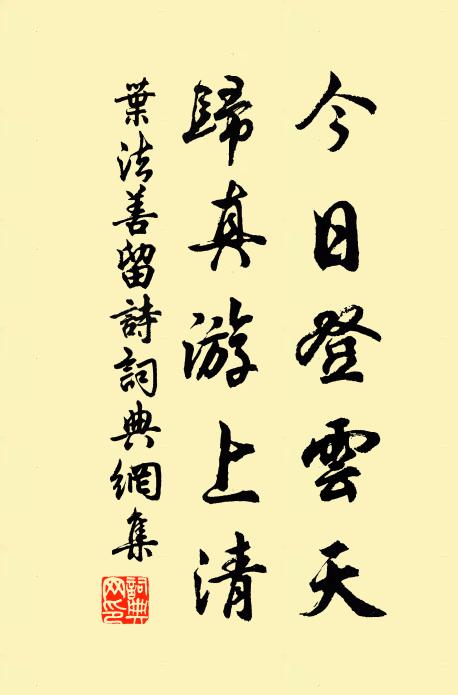 今日登雲天
歸真游上清
葉法善留詩詞典網集
詞典網印